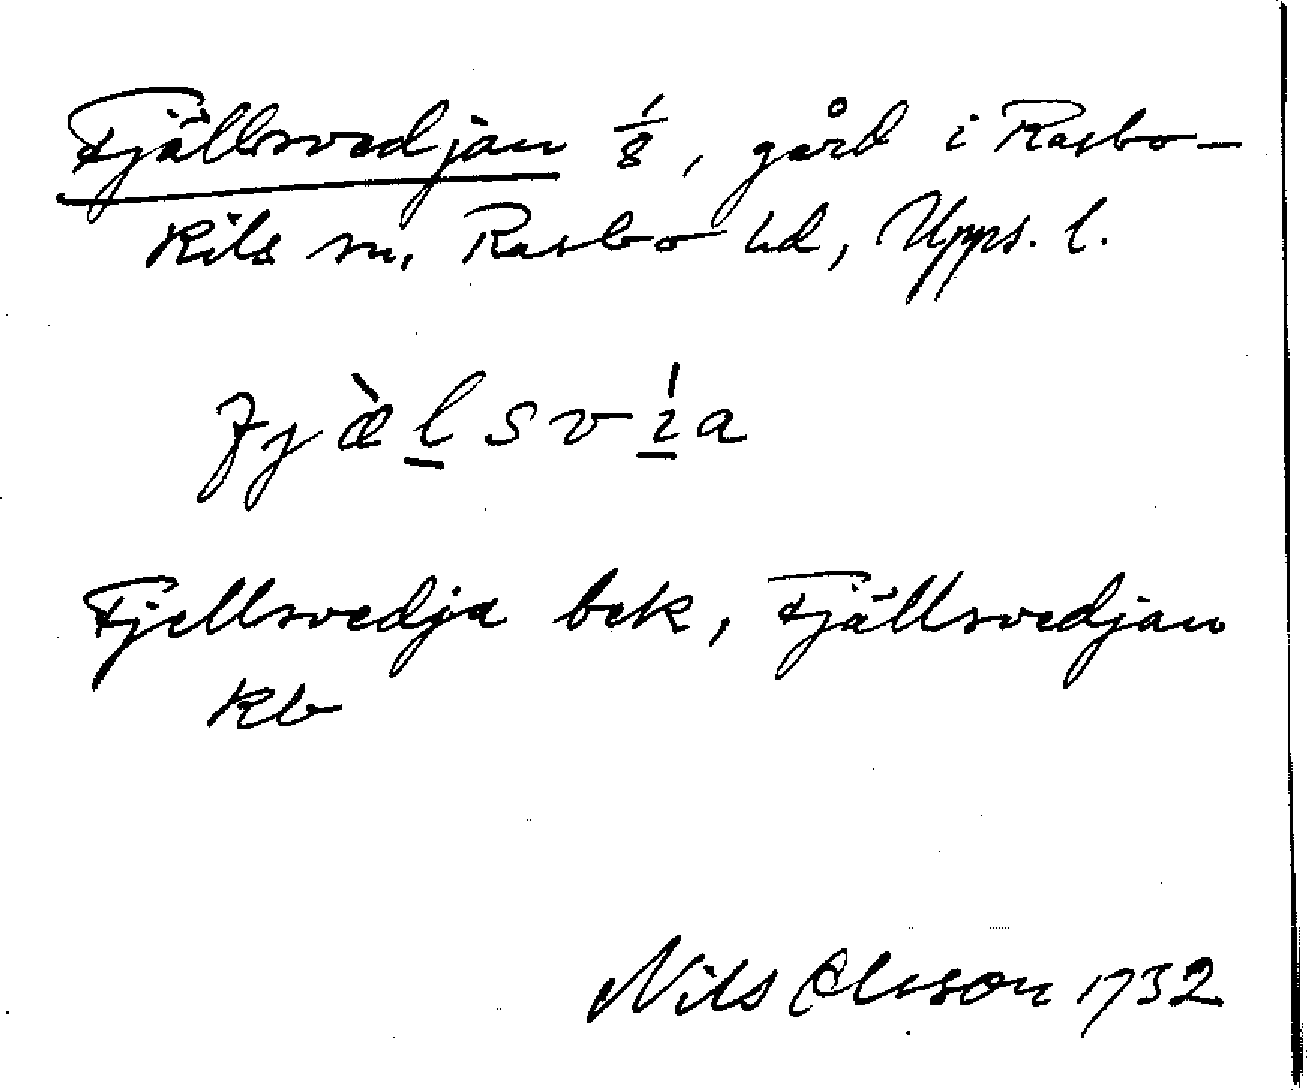 Fjällsvedjan 1/8, gård i Rasbo-
kils sn, Rasbo hd, Upps. l.
fjæ̀l̲svı̲́a
Fjellsvedja bek, Fjällsvedjan
kb
Nils Olsson 1732